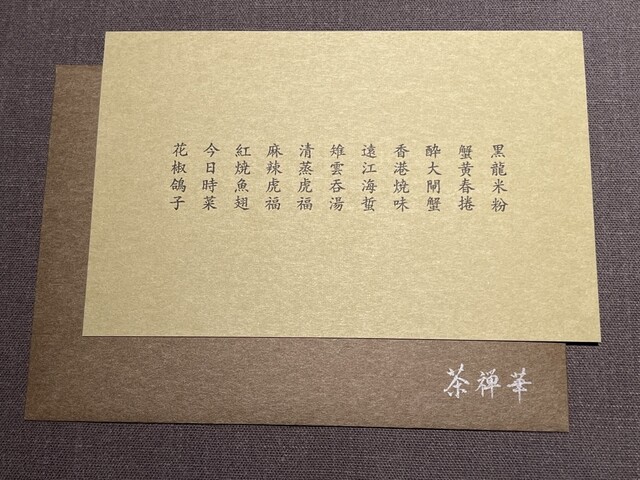 黒龍米粉
蟹黄春捲
酔大閘蟹
香港焼味
遠江海蜇
雉雲吞湯
清蒸虎福
麻辣虎福
紅焼魚翅
今日時菜
花椒鴿子
茶禅華